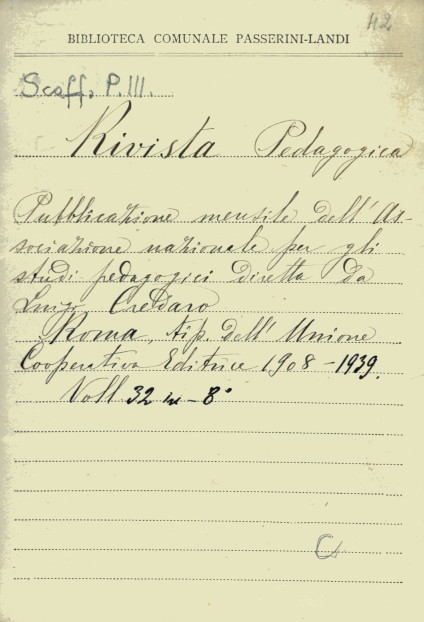 42
BIBLIOTECA COMUNALE PASSERINI-LANDI
Scaff. P. III.
Rivista Pedagogica
Pubblicazione mensile dell'As-
sociazione nazionale per gli
studi pedagogici diretta da
Luigi Credaro
Roma, tip. dell'Unione
Cooperativa Editrice 1908-1939.
Voll. 32 in-8°
C